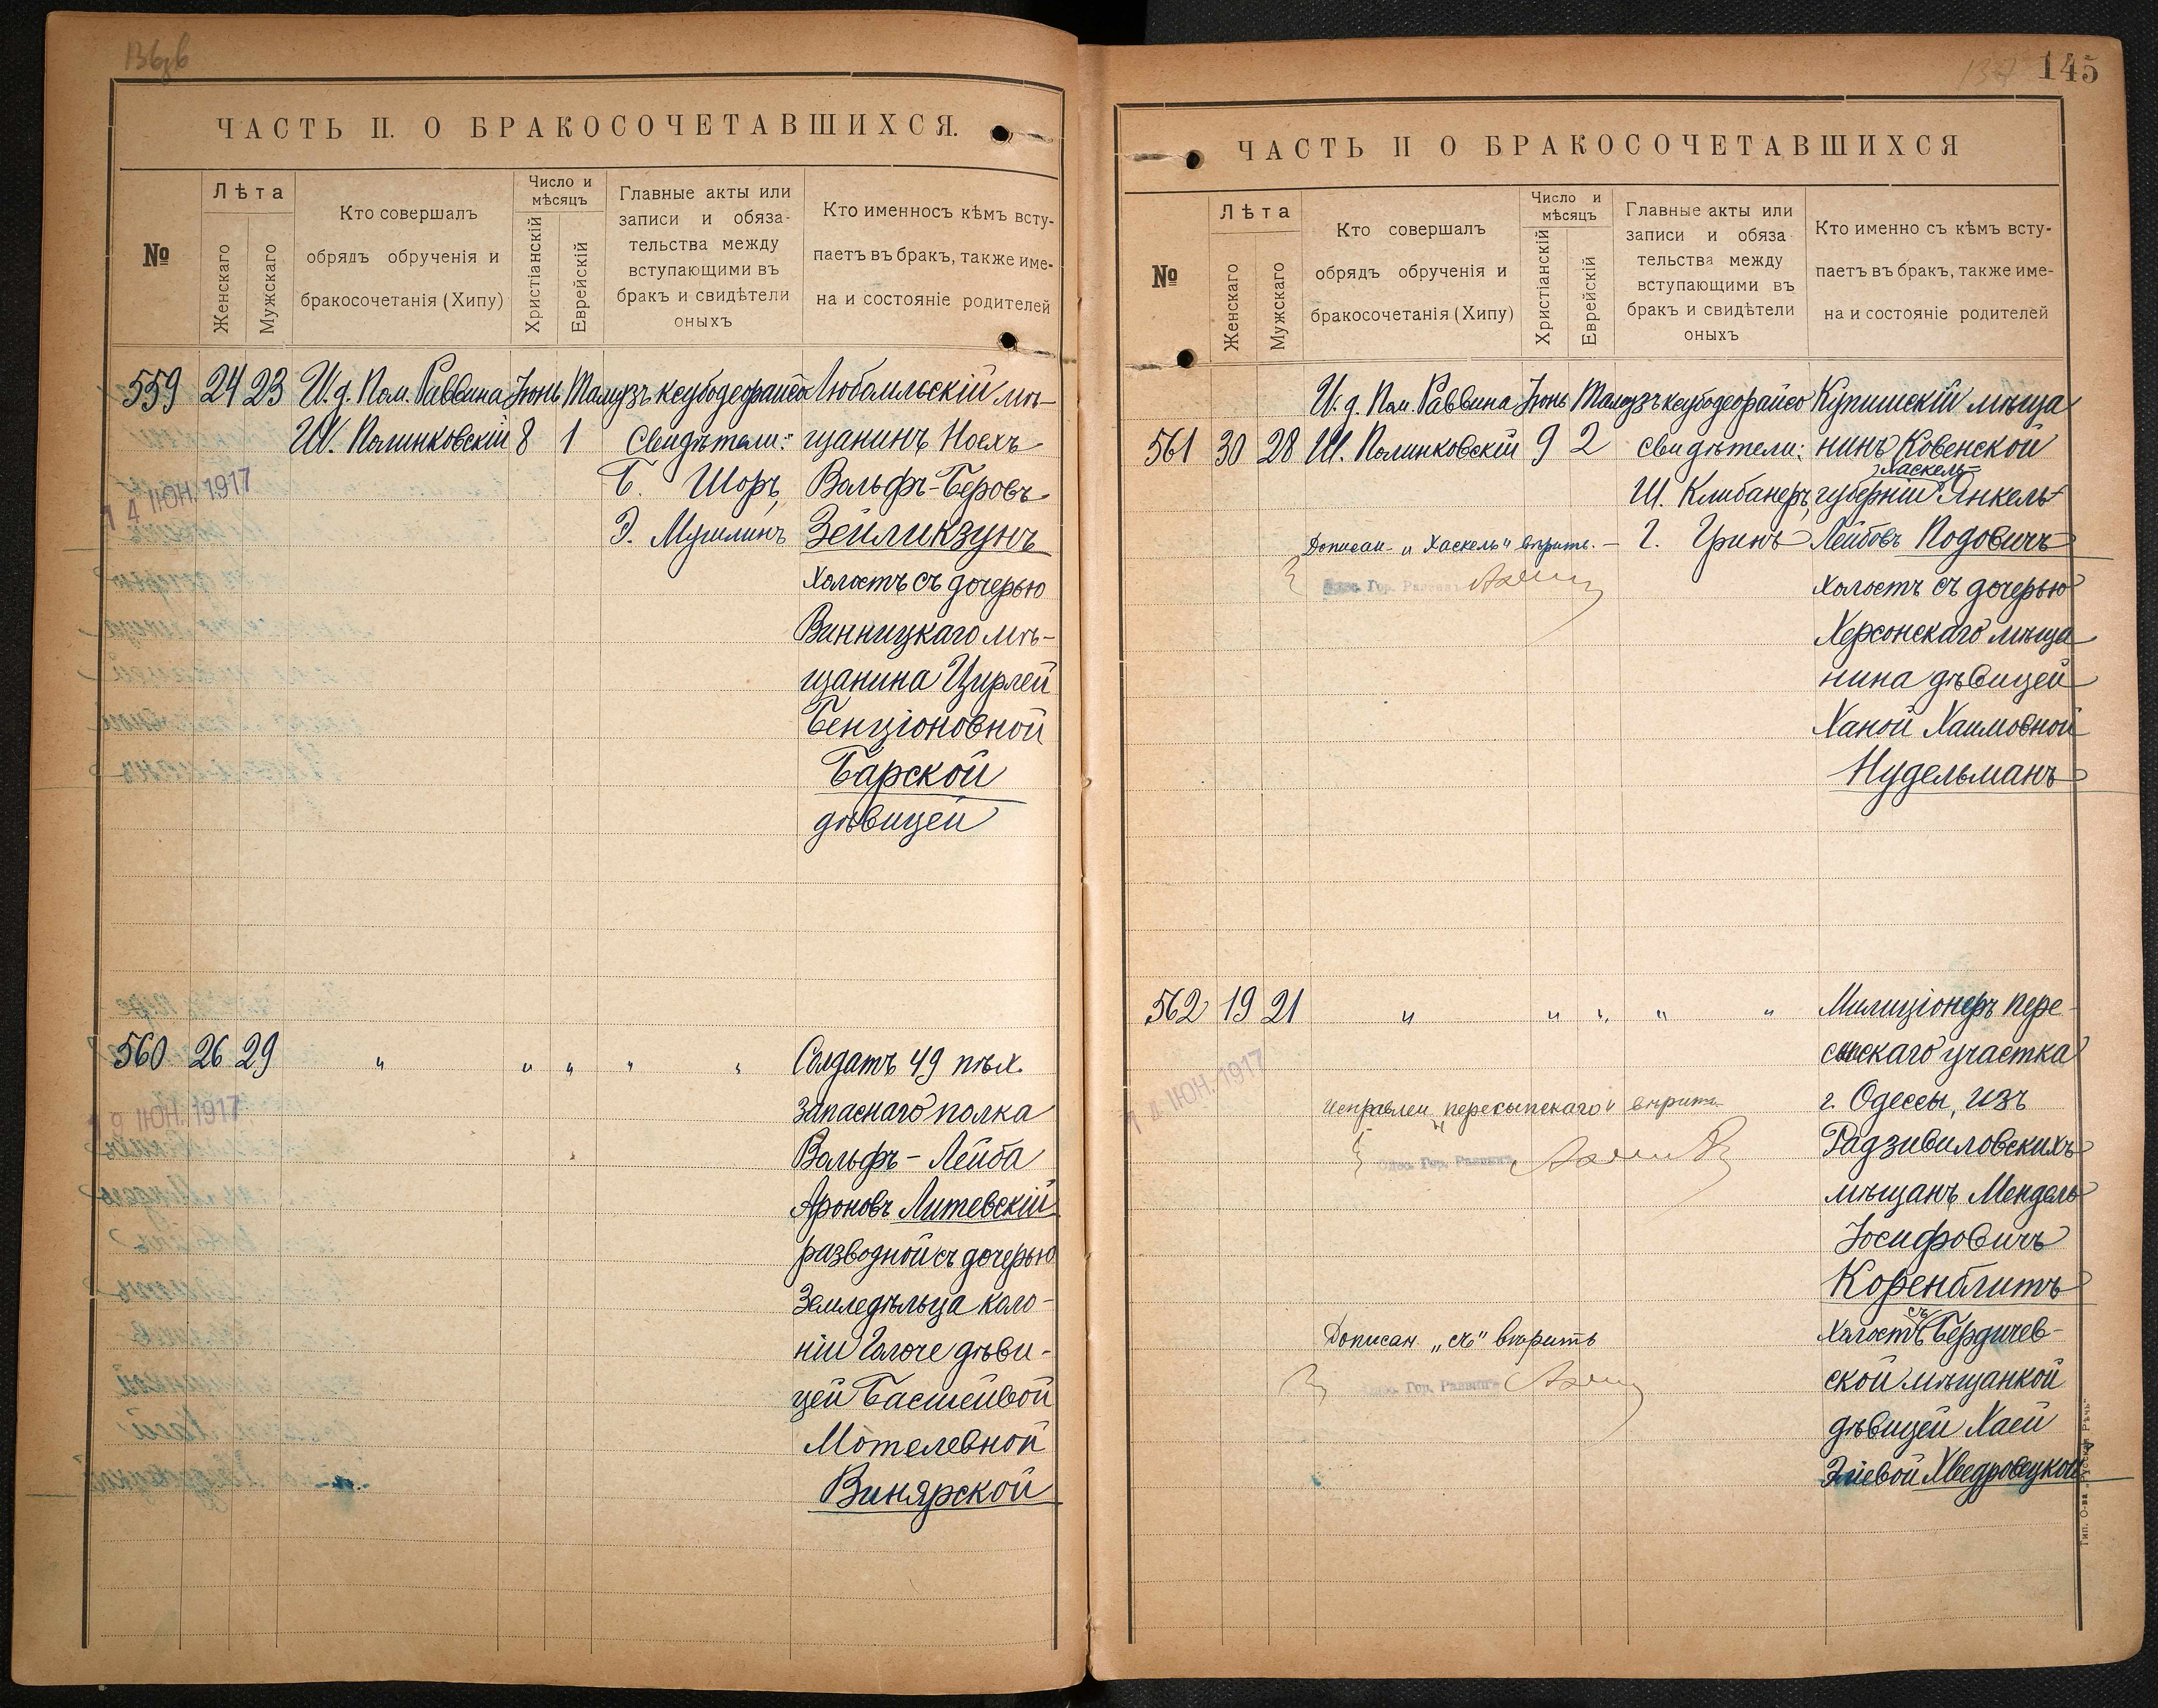 136об
ЧАСТЬ II. О БРАКОСОЧЕТАВШИХСЯ.
№
Лѣта
Женскаго
Мужскаго
Кто совершалъ
обрядъ обрученія и
бракосочетанія (Хипу)
Число и
мѣсяцъ
Христіанскій
Еврейскій
Главные акты или
записи и обяза-
тельства между
вступающими въ
бракъ и свидѣтели
оныхъ
Кто именносъ кѣмъ всту-
паетъ въ бракъ, также име-
на и состояніе родителей
559 24 23 И. д. Пом. Раввина Іюнь Тамузъ ксубодеорайсо Любомльскій мѣ-
Ш. Полинковскій 8 1 Свидѣтели: щанинъ Ноехъ
14 ІЮН. 1917
Б. Шоръ, Вольфъ-Беровъ
Э. Мушлинъ Зейликзунъ
холостъ съ дочерью
Винницкаго мѣ-
щанина Цирлей
Бенціоновной
Барской
дѣвицей
560 26 29 " " " " " Солдатъ 49 пѣх.
запаснаго полка
19 ІЮН. 1917
Вольфъ-Лейба
Ароновъ Литевскій
разводной съ дочерью
Земледѣльца коло-
ніи Голоче дѣви-
цей Басшейвой
Мотелевной
Винярской
137 145
ЧАСТЬ II О БРАКОСОЧЕТАВШИХСЯ
№
Лѣта
Женскаго
Мужскаго
Кто совершалъ
обрядъ обрученія и
бракосочетанія (Хипу)
Число и
мѣсяцъ
Христіанскій
Еврейскій
Главные акты или
записи и обяза
тельства между
вступающими въ
бракъ и свидѣтели
оныхъ
Кто именно съ кѣмъ всту-
паетъ въ бракъ, также име-
на и состояніе родителей
И. д. Пом. Раввина Іюнь Тамузъ ксубодеорайсо Купишскій мѣща
561 30 28 Ш. Полинковскій 9 2 свидѣтели: нинъ Ковенской
Хаскель-
Ш. Клибанеръ, губерніи Янкель
Дописан. „Хаскель" вѣрить. — Г. Гринъ Лейбовъ Подовичъ
Одес. Гор. Раввинъ
холостъ съ дочерью
Херсонскаго мѣща
нина дѣвицей
Ханой Хаимовной
Нудельманъ
562 19 21 " " " " " Милиціонеръ пере-
сыпскаго участка
14 ІЮН. 1917
Исправлен „пересыпскаго" вѣрить
г. Одессы, изъ
Одес. Гор. Раввинъ
Радзивиловскихъ
мѣщанъ Мендель
Іосифовичъ
Коренблитъ
съ
Дописан. „съ" вѣрить
холостъ Бердичев-
Одес. Гор. Раввинъ
ской мѣщанкой
дѣвицей Хаей
Эліевой Хведровецкой
Тип. О-ва „Русская Рѣчь"